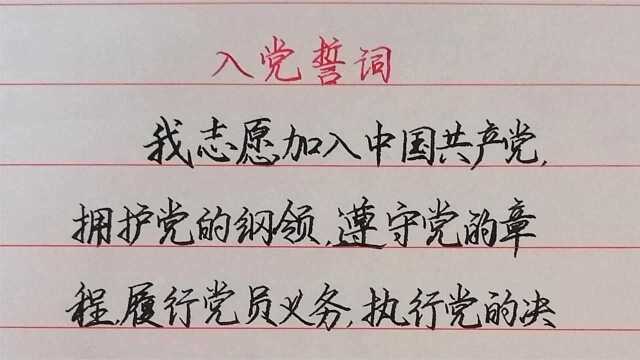 入党誓词
我志愿加入中国共产党,
拥护党的纲领,遵守党的章
程,履行党员义务,执行党的决